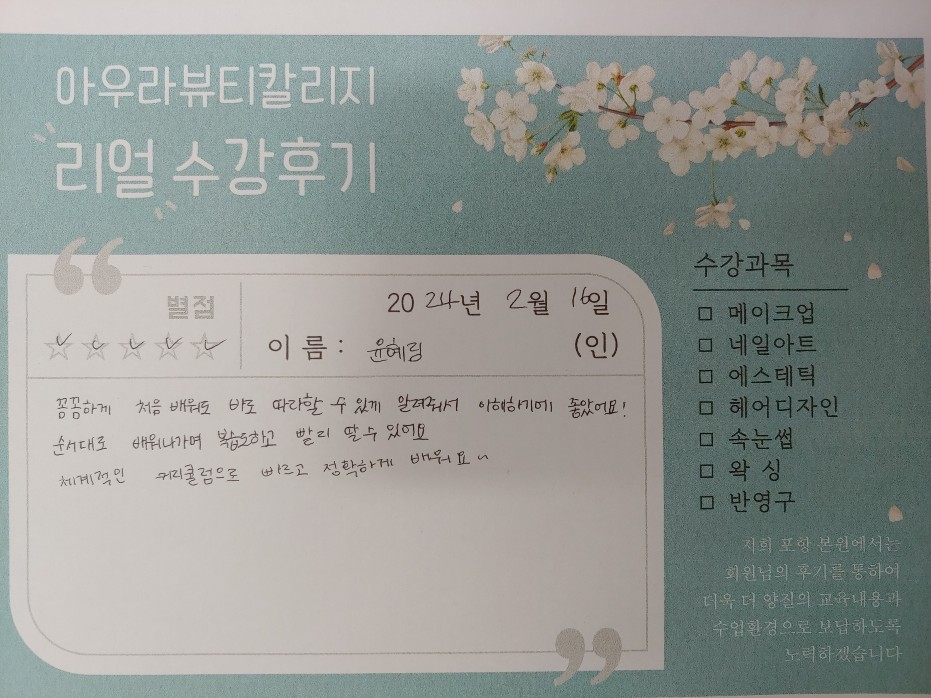 아우라뷰티칼리지
리얼 수강후기
별점
2024년 2월 16일
이름 : 윤혜림 (인)
꼼꼼하게 처음 배워도 바로 따라할 수 있게 알려줘서 이해하기에 좋았어요!
순서대로 배워나가며 복습하고 빨리 딸 수 있어요
체계적인 커리큘럼으로 빠르고 정확하게 배워요~
수강과목
□ 메이크업
□ 네일아트
□ 에스테틱
□ 헤어디자인
□ 속눈썹
□ 왁싱
□ 반영구
저희 포항 본원에서는
회원님의 후기를 통하여
더욱 더 양질의 교육내용과
수업환경으로 보답하도록
노력하겠습니다